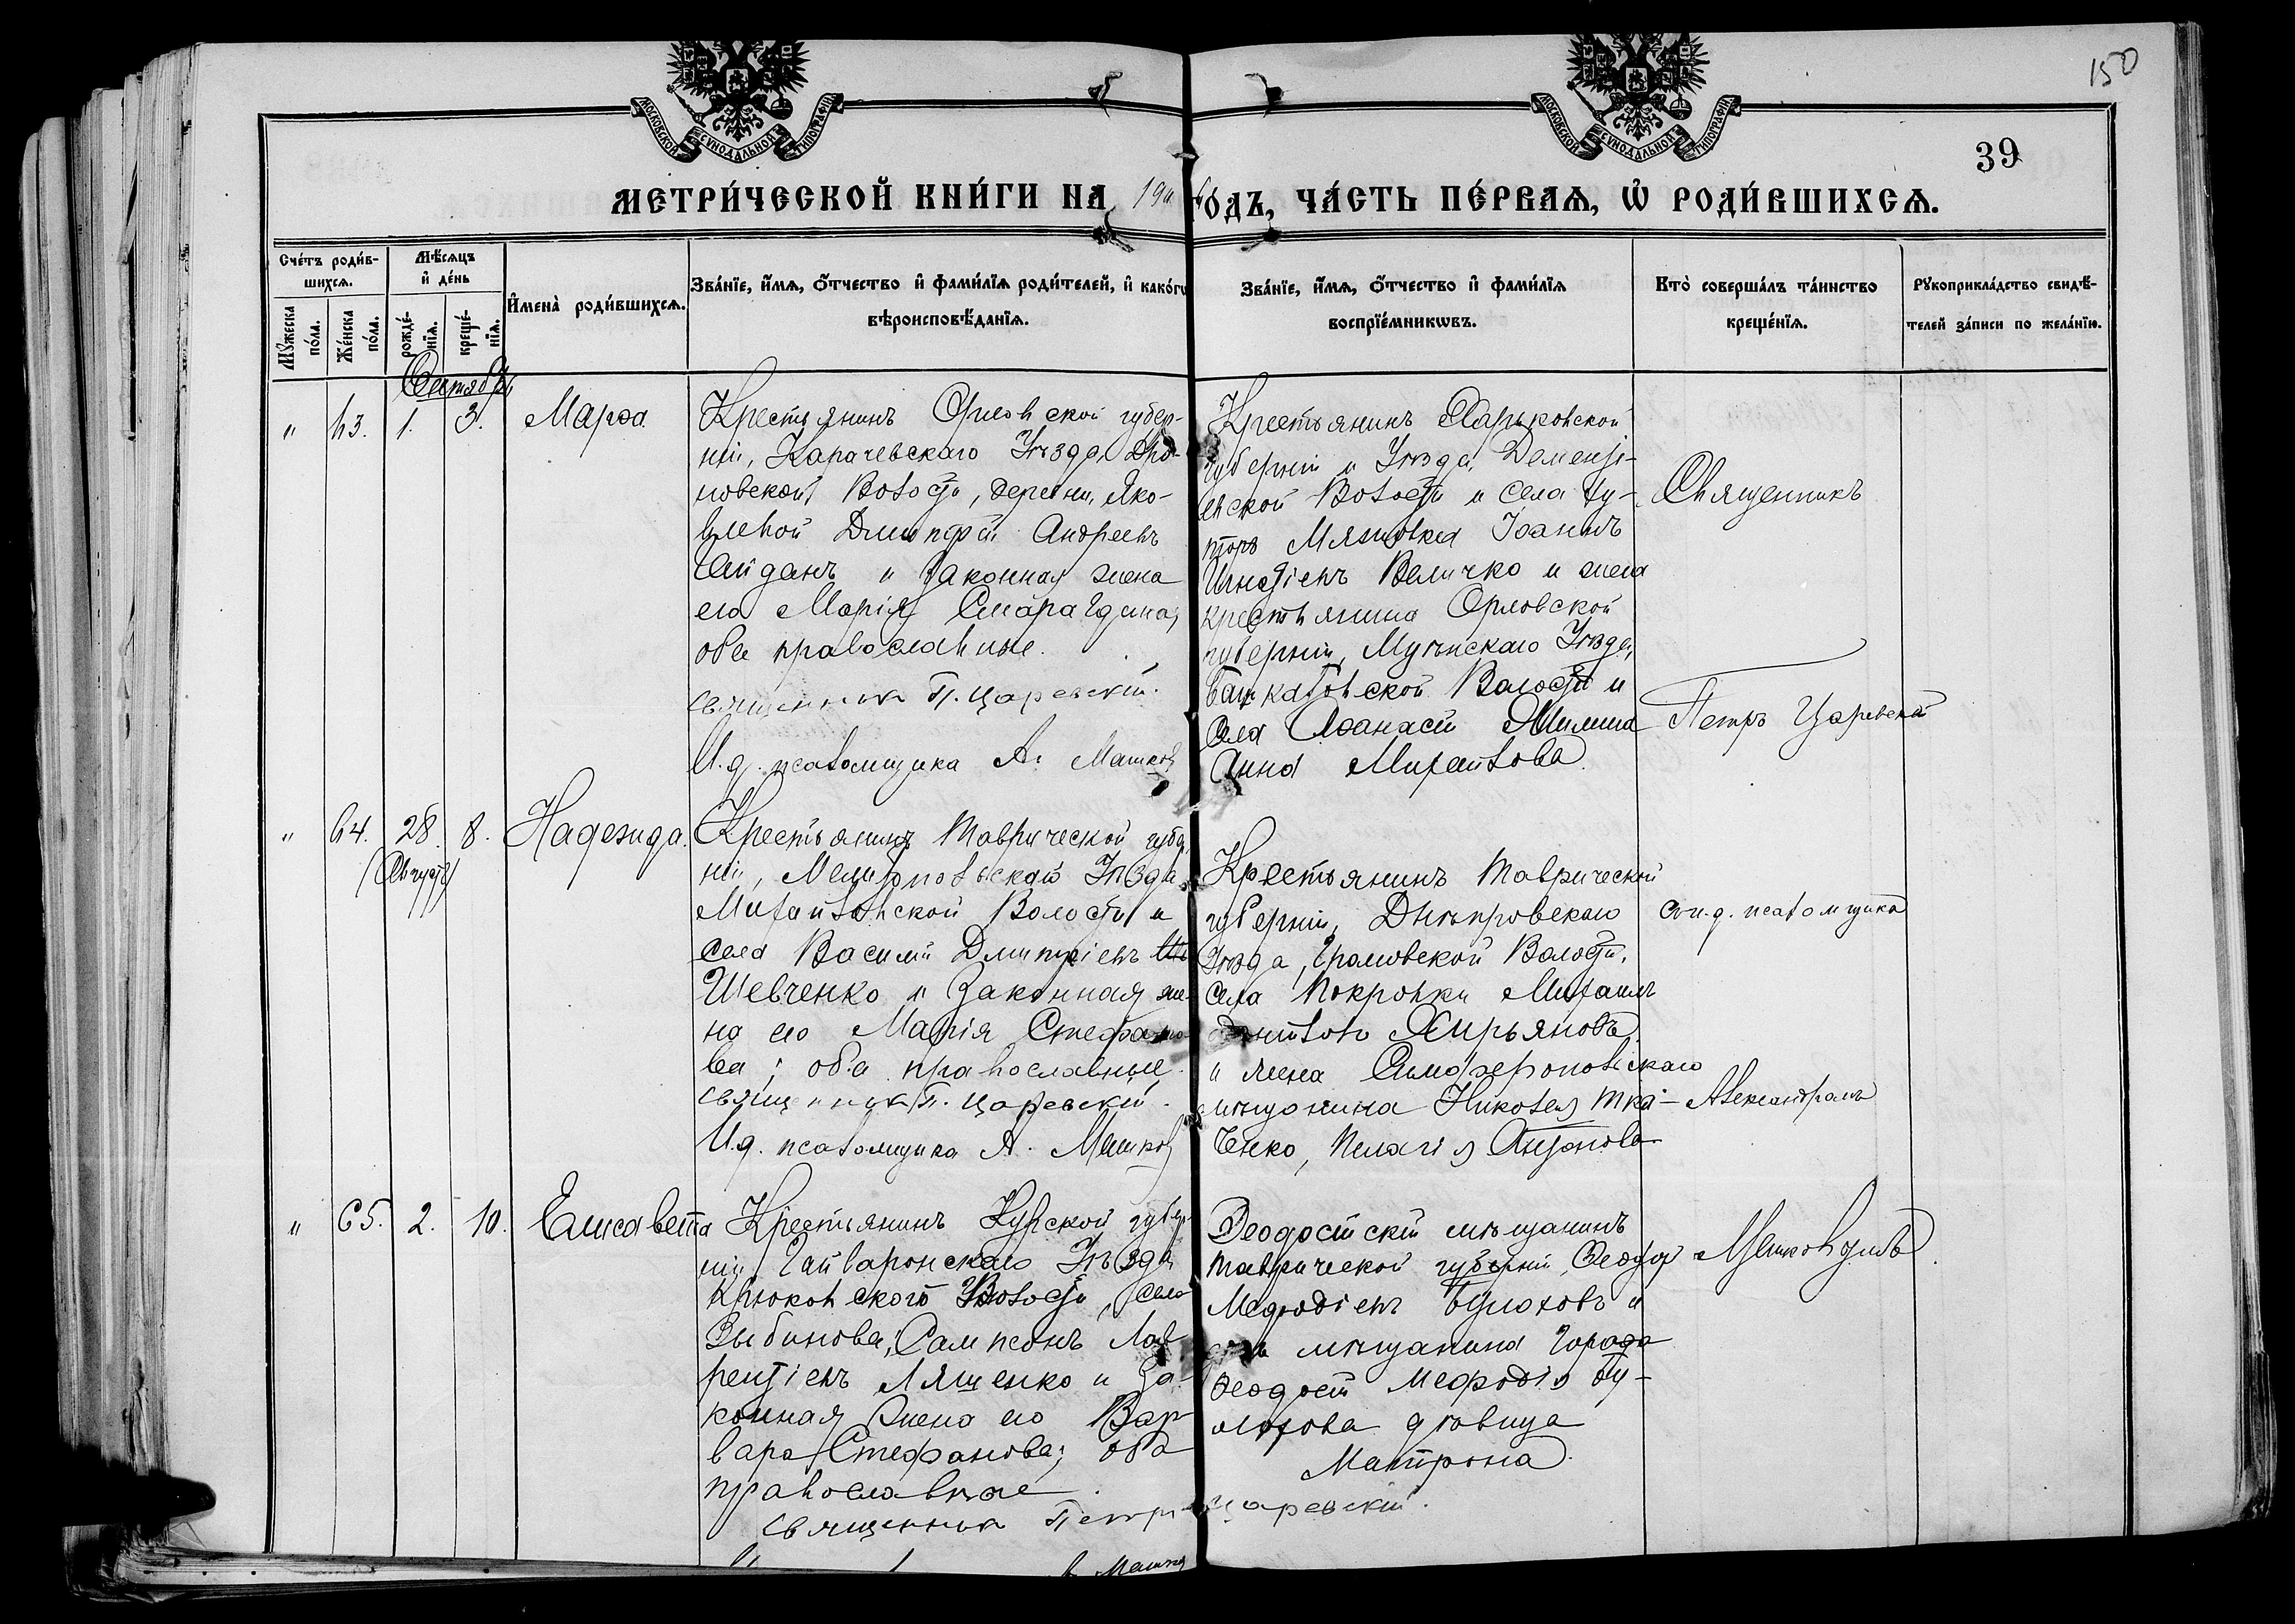 150
39
МОСКОВСКОЙ СѴНОДАЛЬНОЙ ТИПОГРАФІИ
МОСКОВСКОЙ СѴНОДАЛЬНОЙ ТИПОГРАФІИ
МЕТРИ́ЧЕСКОЙ КНИ́ГИ НА 190 ГО́ДЪ, ЧА́СТЬ ПЕ́РВАѦ, Ѡ҆ РОДИ́ВШИХСѦ.
Сче́тъ роди́в-
шихсѧ.
Мꙋ́жеска
по́ла.
Же́нска
по́ла.
Мѣ́сѧцъ
и҆ де́нь
рожде́-
нїѧ.
креще́-
нїѧ.
И҆мена̀ роди́вшихсѧ.
Зва́нїе, и҆́мѧ, ѻ҆́тчество и҆ фами́лїѧ роди́телей, и҆ како́гѡ
вѣроисповѣ́данїѧ.
Зва́нїе, и҆́мѧ, ѻ҆́тчество и҆ фами́лїѧ
воспрїе́мникѡвъ.
Кто̀ соверша́лъ та́инство
креще́нїѧ.
Рꙋкоприкла́дство свидѣ́-
телей за́писи по жела́нїю.
Сентябрь
" 63. 1. 3. Марѳа
Крестьянинъ Орловской губер-
ніи, Карачевскаго Уѣзда, Дро-
новской Волости, деревни Яко-
влевой Дмитрій Андреевъ
Гайданъ и законная жена
его Марія Смарагдина,
оба православные.
священник П. Царевскій.
И.д. псаломщика А. Машков
Крестьянинъ Харьковской
губерніи и Уѣзда, Дементі-
евской Волости и села ху-
торъ Іоаннъ
Игнатіевъ Величко и жена
крестьянина Орловской
губерніи, Мценскаго Уѣзда,
Волости и
села Аѳанасія
Анна Михайлова.
Священникъ
Петръ Царевскій
" 64. 28. 8. Надежда.
(Августа)
Крестьянинъ Таврической губер
ніи, Мелитопольской Уѣзда
Михайловской Волости и
села Василій Дмитріевъ
Шевченко и законная же-
на его Марія Стефано
ва; оба православные.
священник П. Царевскій.
И.д. псаломщика А. Машков
Крестьянинъ Таврической
губерніи, Днѣпровскаго
Уѣзда, Громовской Волости,
села Покровки Михаилъ
Кирьяновъ
и жена Симферопольскаго
мѣщанина Николая Тка-
ченко, Пелагія Антонова
съ и.д. псаломщика
Александромъ
" 65. 2. 10. Елисавета
Крестьянинъ Курской губер-
ніи, Гайворонскаго Уѣзда
Крюковского Волости, села
Зыбинова, Сампсонъ Лав-
рентіевъ Лященко и за-
конная жена его Вар-
вара Стефанова; оба
православные.
священник Петръ Царевскій.
Машков
Ѳеодосійскій мѣщанинъ
Таврической губерніи, Ѳеодор
Меѳодіевъ Булаховъ и
дочь мѣщанина города
Ѳеодосіи Меѳодія Бу-
лахова дѣвица
Матрона.
Машковымъ